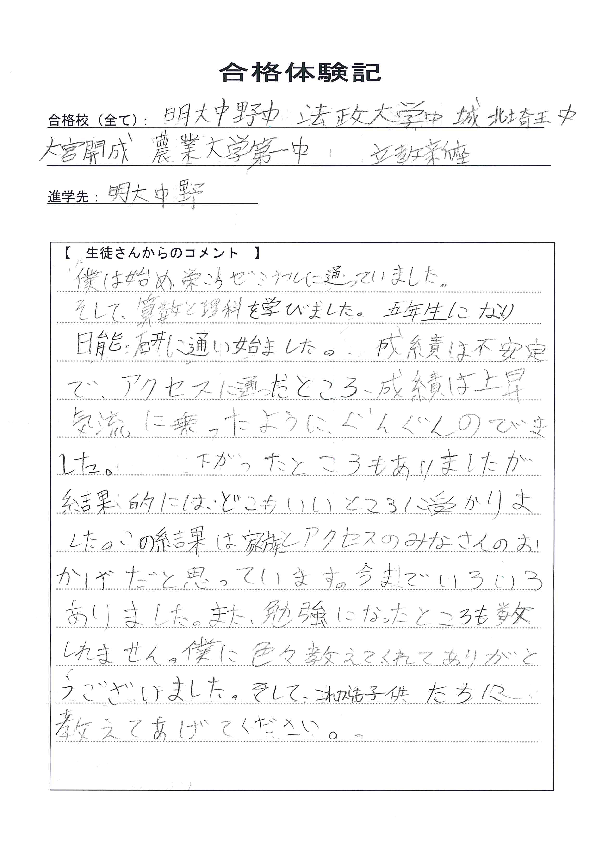 合格体験記
合格校（全て）： 明大中野中 法政大学中 城北埼玉中
大宮開成 農業大学第一中 立教新座
進学先： 明大中野
【 生徒さんからのコメント 】
僕は始め、栄こうゼミナールに通っていました。
そして、算数と理科を学びました。五年生になり
日能研に通い始ました。 成績は不安定
で、アクセスに通だところ、成績は上昇
気流に乗ったように、ぐんぐんのびま
した。 下がったところもありましたが
結果的には、どこもいいところに受かりま
した。この結果は家族とアクセスのみなさんのお
かげだと思っています。今までいろいろ
ありました。また、勉強になったところも数
しれません。僕に色々教えてくれてありがと
うございました。そして、これからも子供たちに
教えてあげてください。